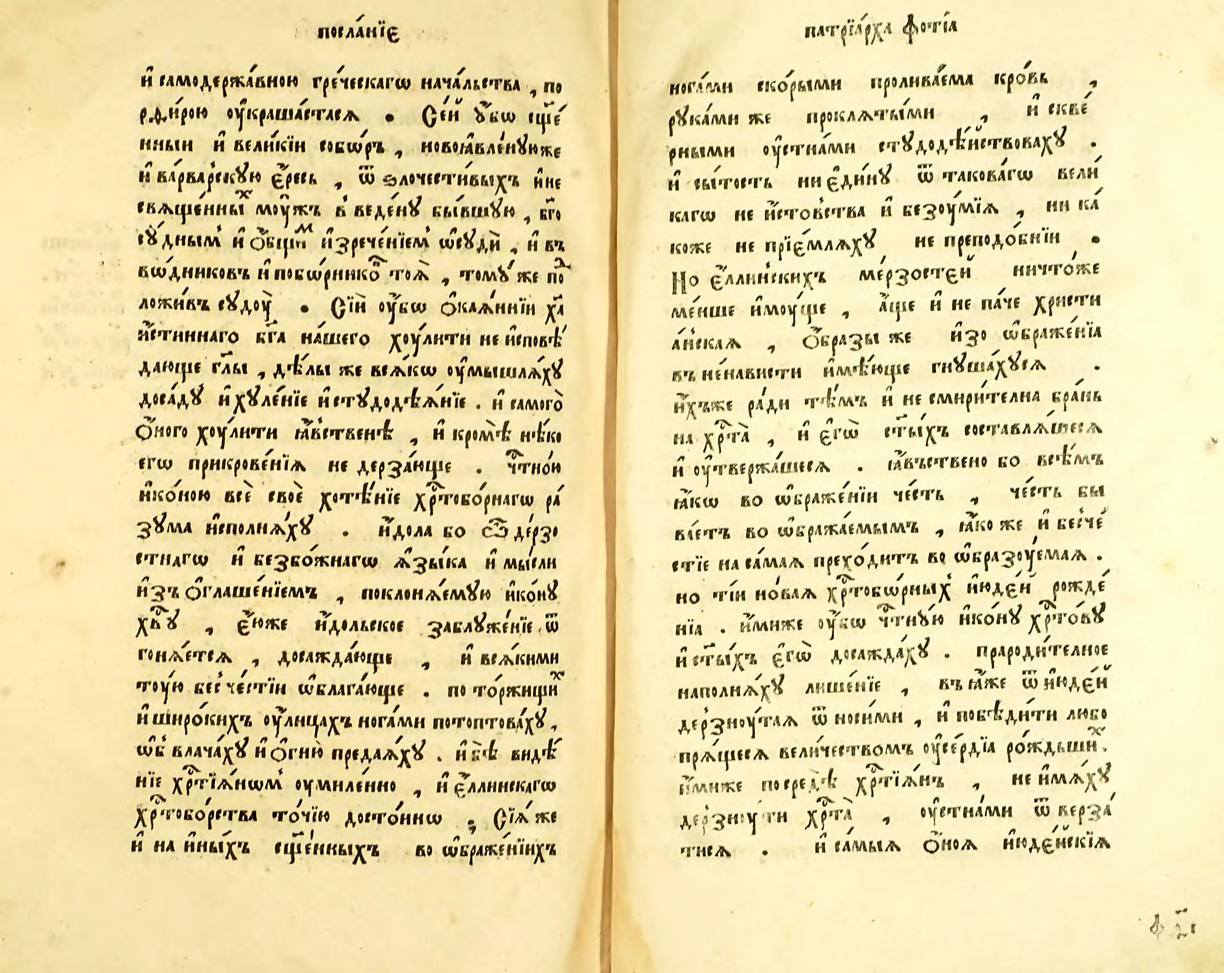 посла́нїе
и҆ самодержа́вною гре́ческагѡ нача́льства , по
рѳи́рою ѹ҆крашастасѧ . Се́й ꙋ҆бѡ сщ҃е́
нныи и҆ вели́кїи собѡ́ръ , новоꙗвле́нꙋюже
и҆ ва́рварскꙋю є҆́ресь , ѿ ѕлочести́выхъ и҆ не
свѧще́нныⷯ мѹ҆жъ в̾веде́нꙋ бы́вшꙋю , бг҃о
сꙋ́дным̾ и҆ ѻ҆́бщиⷨ и҆зрече́нїем̾ ѡ҆сꙋдѝ , и҆ въ
вѡ́дниковъ и҆ побѡ́рникоⷡ тоѧ̀ , томꙋ́же поⷣ
ложи́въ сꙋдѹ̀ . Сїи́ ѹ҆́бѡ ѻ҆каѧ́ннїи хⷭ҇а
и҆́стиннаго бг҃а на́шего хѹ́лити не и҆сповѣ́
дающе гл҃ы , дѣ́лы же всѧ́кѡ ѹ҆мышлѧ́хꙋ
доса́дꙋ и҆ хꙋле́нїе и҆ стꙋдодѣѧ́нїе . и҆ самого̀
ѻ҆́ного хѹ́лити ꙗ҆́вственѣ , и҆ кромѣ̀ нѣ́ко
егѡ прикрове́нїѧ не дерза́юще . чⷭ҇тно́ю
и҆ко́ною всѐ своѐ хотѣ́нїе хрⷭ҇тобо́рнагѡ ра́
зꙋма и҆сполнѧ́хꙋ . и҆́дола бо ѽ де́рзо
стнагѡ и҆ безбо́жнагѡ ѧ҆зы́ка и҆ мы́сли
и҆зъ ѻ҆глаше́нїемъ , поклонѧ́емꙋю и҆ко́нꙋ
хв҃ꙋ , є҆́юже и҆́дольское заблꙋжє́нїе ѿ
гонѧ́етсѧ , досажда́юще , и҆ всѧ́кими
тꙋ́ю бесче́стїи ѡ҆блага́юще . по то́ржищиⷯ
и҆ широ́кихъ ѹ҆́лицахъ нога́ми потоптова́хꙋ ,
ѡ҆б̾ влача́хꙋ и҆ ѻ҆гню̀ предаѧ́хꙋ . и҆ бѣ̀ видѣ́
нїе хрⷭ҇тїѧ́нѡм̾ ѹ҆миле́нно , и҆ є҆́ллинскагѡ
хрⷭ҇тобо́рства то́чїю досто́йнѡ ; Сїѧ́ же
и҆ на и҆ны́хъ сщ҃е́нныхъ во ѡ҆браже́нїихъ
патрїа́рха фо́тїа
нога́ми ско́рыми пролива́ема кро́вь ,
рꙋка́ми же проклѧ́тыми , и҆ скве́
рными ѹ҆стна́ми стꙋдодѣ́йствоваху .
и҆ сы́тость ни є҆ди́нꙋ ѿ такова́гѡ вели́
кагѡ не и҆́стовства и҆ безѹ́мїѧ , ни ка́
коже не прїе́млѧхꙋ не преподо́бнїи .
Но є҆́ллинскихъ ме́рзостей ничто́же
ме́нше и҆мꙋ́ще , а҆́ще и҆ не па́че христи
а́нскаѧ , ѻ҆́бразы же и҆зо ѡ҆браже́нїа
въ не́нависти и҆мѣ́юще гнꙋша́хꙋсѧ .
и҆́хъже ра́ди тѣ́мъ и҆ не смири́телна бра́нь
на хрⷭ҇та̀ , и҆ є҆гѡ̀ ст҃ы́хъ составлѧ́шесѧ
и҆ ѹ҆твержа́шесѧ . ꙗ҆́въствено бо всѣ́мъ
ꙗ҆́кѡ во ѡ҆браже́нїи че́сть , че́сть бы
ва́етъ во ѡ҆бража́емымъ , ꙗ҆́коже и҆ бесче́
стїе на са́маѧ прехо́дитъ во ѡ҆бразѹ́емаѧ .
но тїи́ но́ваѧ хрⷭ҇тобѡ́рныхъ и҆ю҆де́й рожде́
нїа . и҆́миже ѹ҆́бѡ чⷭ҇тнꙋ́ю и҆ко́нꙋ хрⷭ҇то́вꙋ
и҆ ст҃ы́хъ є҆гѡ̀ досажда́хꙋ . прароди́телное
наполнѧ́хꙋ лише́нїе , въ ꙗ҆́же ѿ и҆ю҆де́й
дерзнѹ́таѧ ѿ носи́ми , и҆ побѣди́ти любо
прѧ́щесѧ вели́чествомъ ѹ҆се́рдїа ро́ждьшиⷯ .
и҆́миже посредѣ̀ хрⷭ҇тїѧ́нъ , не и҆мѧ́хꙋ
дерзнꙋ́ти хрⷭ҇та̀ , ѹ҆стна́ми ѿ верза́
тисѧ . и҆ са́мыѧ ѻ҆́ноѧ и҆ю҆де́йскїѧ